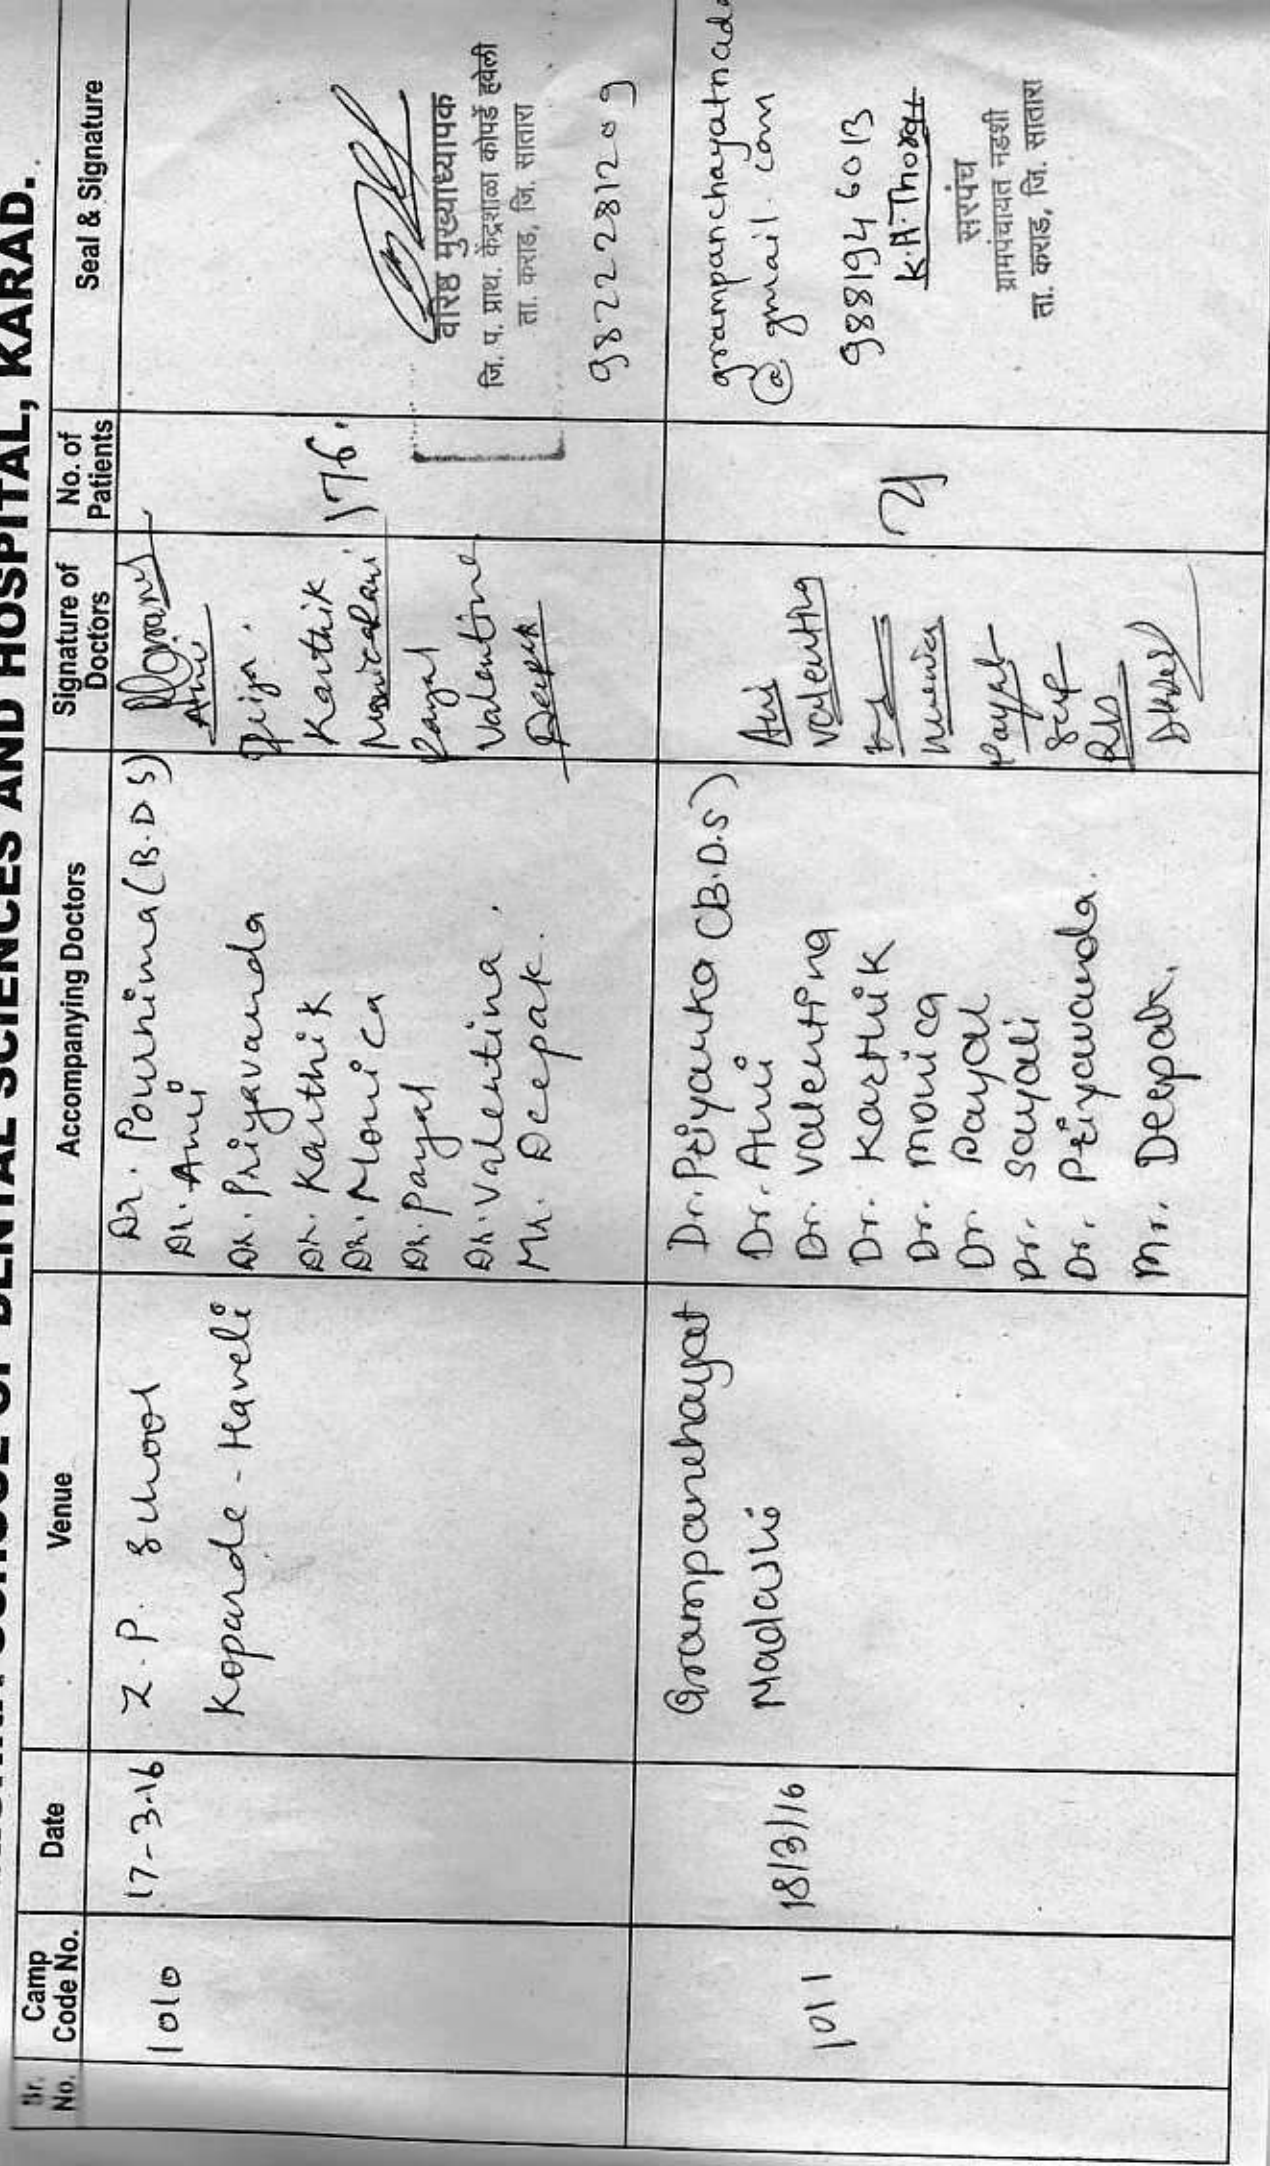 SCHOOL OF DENTAL SCIENCES AND HOSPITAL, KARAD.
Sr. No.
Camp Code No.
Date
Venue
Accompanying Doctors
Signature of Doctors
No. of Patients
Seal & Signature
1010
17-3-16
Z.P. School
Koparde - Haveli
Dr. Pournima (B.D.S)
Dr. Ami
Dr. Priyavanda
Dr. Karthik
Dr. Monica
Dr. Payal
Dr. Valentina.
Mr. Deepak.
Karthik
Payal
Valentina
Deepak
176.
वरिष्ठ मुख्याध्यापक
जि. प. प्राथ. केंद्रशाळा कोपर्डे हवेली
ता. कराड, जि. सातारा
9822281209
1011
18/3/16
Grampanchayat
Dr. Priyanka (B.D.S)
Dr. Ami
Dr. Valentina
Dr. Karthik
Dr. Monica
Dr. Payal
Dr. Sayali
Dr. Priyavanda.
Mr. Deepak.
Ami
Valentina
Monica
Payal
grampanchayatnad
@gmail.com
9881946013
K.A.Thorat
सरपंच
ग्रामपंचायत नडशी
ता. कराड, जि. सातारा